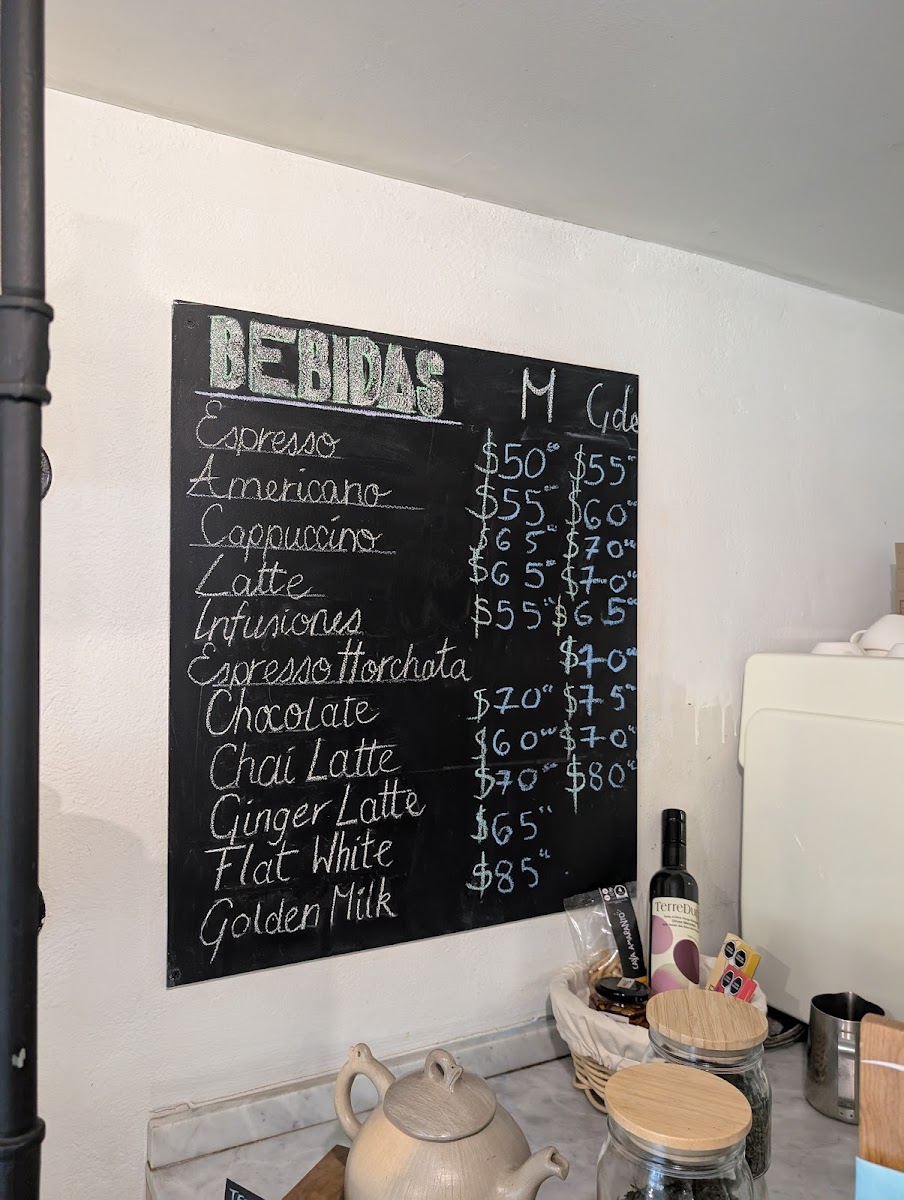 BEBIDAS M Gde
Espresso $50⁰⁰ $55⁰⁰
Americano $55⁰⁰ $60⁰⁰
Cappuccino $65⁰⁰ $70⁰⁰
Latte $65⁰⁰ $70⁰⁰
Infusiones $55⁰⁰ $65⁰⁰
Espresso Horchata $70⁰⁰
Chocolate $70⁰⁰ $75⁰⁰
Chai Latte $60⁰⁰ $70⁰⁰
Ginger Latte $70⁰⁰ $80⁰⁰
Flat White $65⁰⁰
Golden Milk $85⁰⁰
AMARANTO
TerreDu